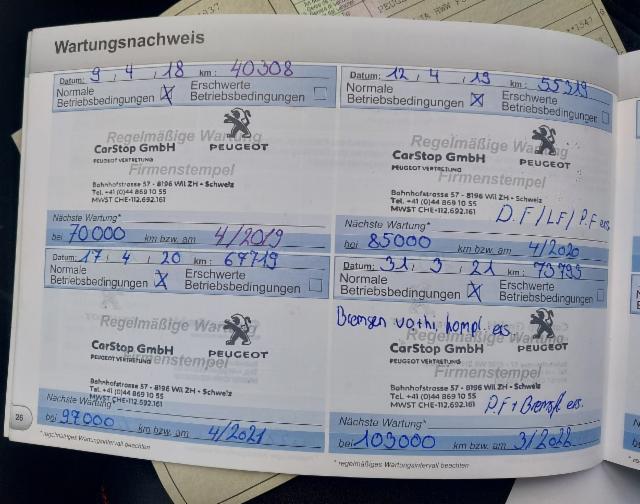 Wartungsnachweis
Datum: 9 , 4 , 18 km : 40308
Normale Betriebsbedingungen X Erschwerte Betriebsbedingungen
Regelmäßige Wartung
CarStop GmbH PEUGEOT
PEUGEOT VERTRETUNG
Firmenstempel
Bahnhofstrasse 57 - 8196 Wil ZH - Schweiz
Tel. +41 (0)44 869 10 55
MWST CHE-112.692.161
Nächste Wartung*
bei 70000 km bzw. am 4/2019
Datum: 12 , 4 , 19 km : 55319
Normale Betriebsbedingungen X Erschwerte Betriebsbedingungen
Regelmäßige Wartung
CarStop GmbH PEUGEOT
PEUGEOT VERTRETUNG
Firmenstempel
Bahnhofstrasse 57 - 8196 Wil ZH - Schweiz
Tel. +41 (0)44 869 10 55
MWST CHE-112.692.161
Ö.F/LF/P.F ers.
Nächste Wartung*
bei 85000 km bzw. am 4/2020
Datum: 17 , 4 , 20 km : 67719
Normale Betriebsbedingungen X Erschwerte Betriebsbedingungen
Regelmäßige Wartung
CarStop GmbH PEUGEOT
PEUGEOT VERTRETUNG
Firmenstempel
Bahnhofstrasse 57 - 8196 Wil ZH - Schweiz
Tel. +41 (0)44 869 10 55
MWST CHE-112.692.161
Nächste Wartung*
bei 97000 km bzw. am 4/2021
* regelmäßiges Wartungsintervall beachten
Datum: 31 , 3 , 21 km : 73793
Normale Betriebsbedingungen X Erschwerte Betriebsbedingungen
Bremsen vo+hi kompl. ers.
Regelmäßige Wartung
CarStop GmbH PEUGEOT
PEUGEOT VERTRETUNG
Firmenstempel
Bahnhofstrasse 57 - 8196 Wil ZH - Schweiz
Tel. +41 (0)44 869 10 55
MWST CHE-112.692.161
P.F + Bremsfl. ers.
Nächste Wartung*
bei 103000 km bzw. am 3/2022
* regelmäßiges Wartungsintervall beachten
26